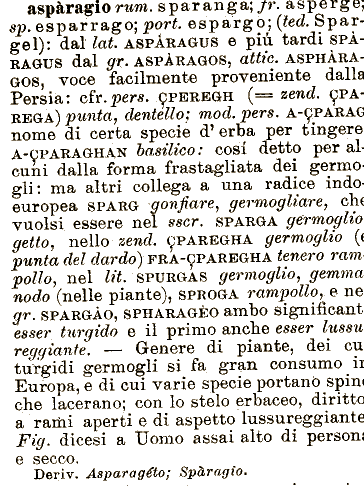 aspàragio rum. sparanga; fr. asperge;
sp. esparrago; port. espargo; (ted. Spar-
gel): dal lat. ASPÀRAGUS e più tardi SPÀ-
RAGUS dal gr. ASPÀRAGOS, attic. ASPHÀRA-
GOS, voce facilmente proveniente dalla
Persia: cfr. pers. ÇPEREGH (= zend. ÇPA-
REGA) punta, dentello; mod. pers. A-ÇPARAG
nome di certa specie d'erba per tingere
A-ÇPARAGHAN basilico: cosí detto per al-
cuni dalla forma frastagliata dei germo-
gli: ma altri collega a una radice indo-
europea SPARG gonfiare, germogliare, che
vuolsi essere nel sscr. SPARGA germoglio
getto, nello zend. ÇPAREGHA germoglio (e
punta del dardo) FRA-ÇPAREGHA tenero ram-
pollo, nel lit. SPURGAS germoglio, gemma
nodo (nelle piante), SPROGA rampollo, e ne
gr. SPARGÀO, SPHARAGÈO ambo significant
esser turgido e il primo anche esser lussu
reggiante. — Genere di piante, dei cu
turgidi germogli si fa gran consumo i
Europa, e di cui varie specie portano spin
che lacerano; con lo stelo erbaceo, diritto
a rami aperti e di aspetto lussureggiante
Fig. dicesi a Uomo assai alto di person
e secco.
Deriv. Asparagéto; Spàragio.